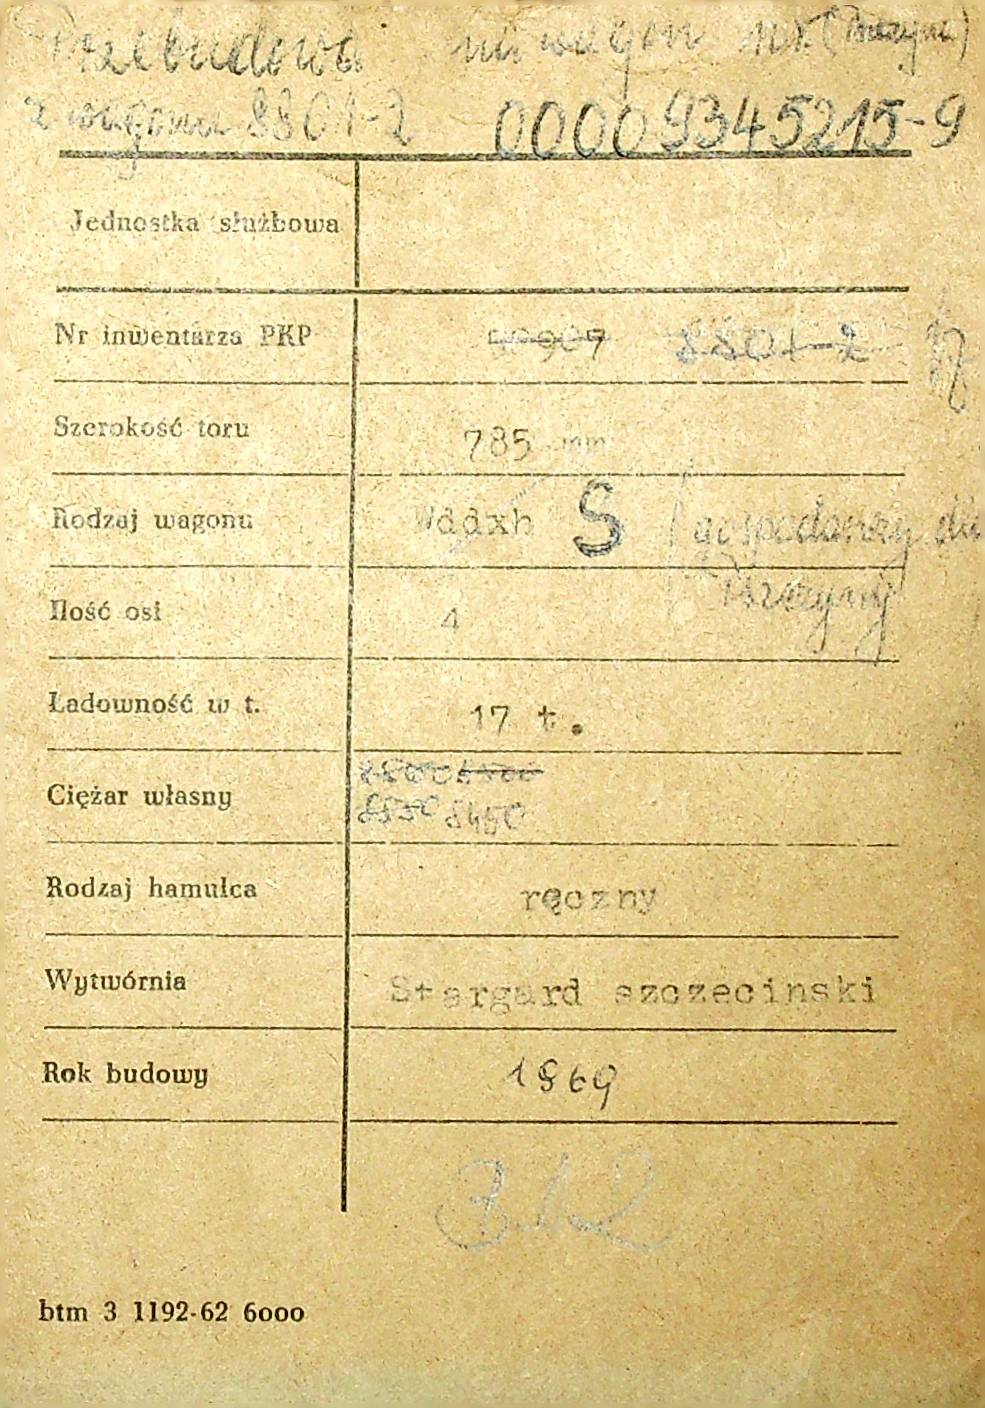 Przebudowa na wagon nr.
z wagonu 8801-2 00009345215-9
Jednostka służbowa
Nr inwentarza PKP 8801-2
Szerokość toru 785 mm
Rodzaj wagonu Wddxh S (gospodarczy dla
Ilość osi 4
Ładowność w t. 17 t.
Ciężar własny
8450
Rodzaj hamulca ręczny
Wytwórnia Stargard szczecinski
Rok budowy 1969
312
btm 3 1192-62 6000